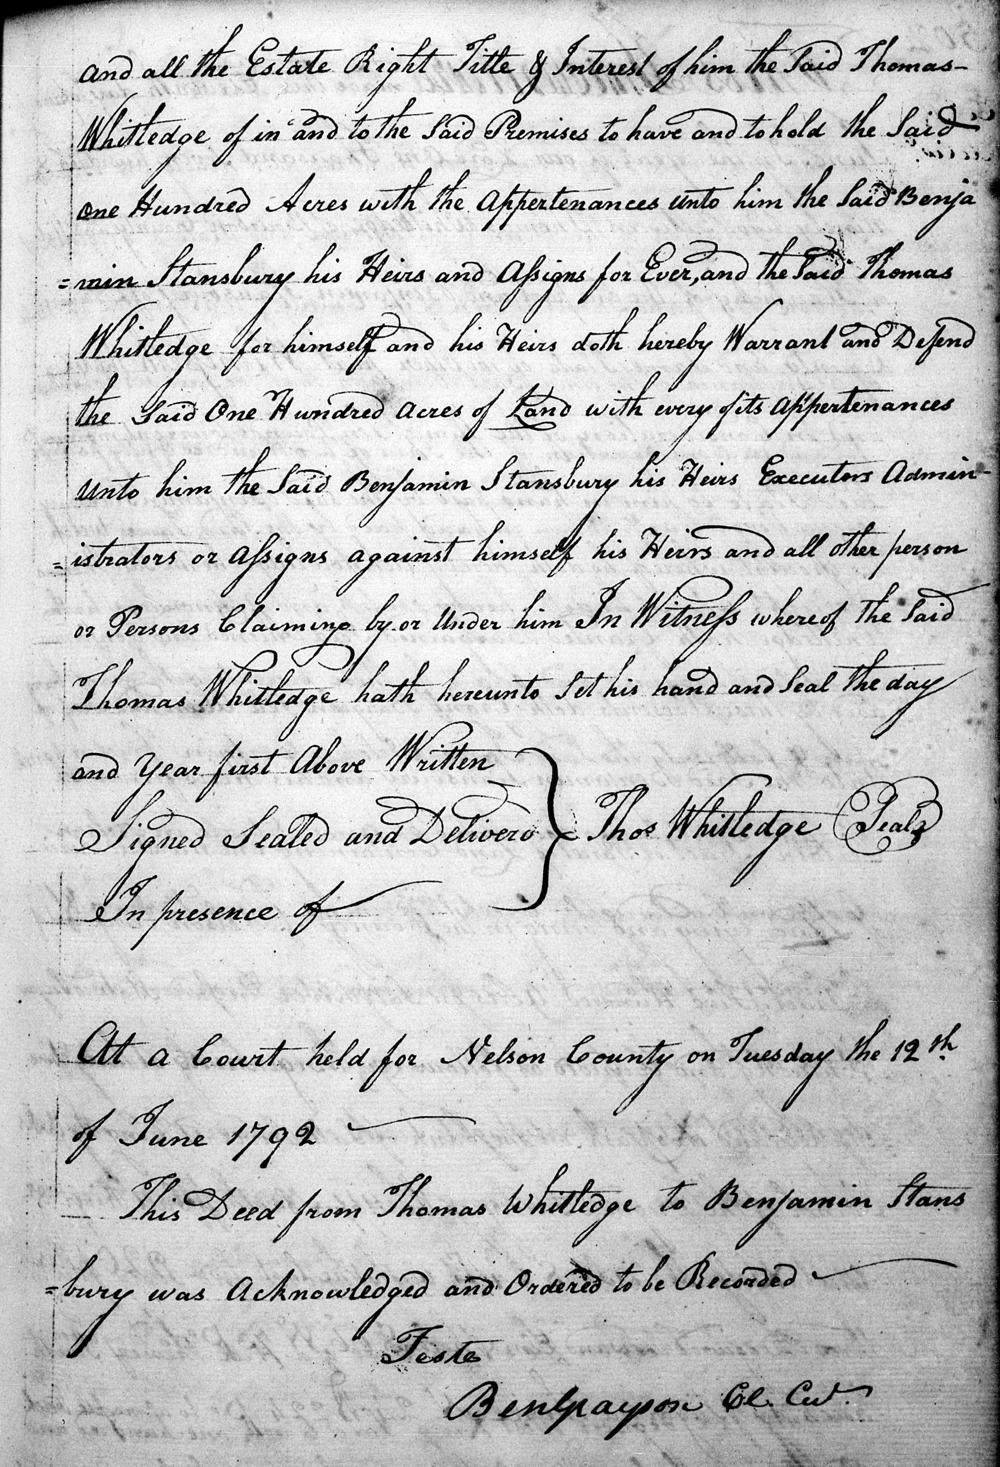 and all the Estate Right Title & Interest of him the Said Thomas-
Whitledge of in and to the Said Premises to have and to hold the Said
One Hundred Acres with the Appertenances unto him the Said Benja
=min Stansbury his Heirs and Assigns for Ever, and the Said Thomas
Whitledge for himself and his Heirs doth hereby Warrant and Defend
the Said One Hundred Acres of Land with every of its Appertenances
unto him the Said Benjamin Stansbury his Heirs Executors Admin-
=istrators or Assigns against himself his Heirs and all other person
or Persons Claiming by or Under him In Witness whereof the Said
Thomas Whitledge hath hereunto Set his hand and Seal the day
and Year first Above Written
Signed Sealed and Deliverd } Thos Whitledge Seal
In presence of
At a Court held for Nelson County on Tuesday the 12th
of June 1792
This Deed from Thomas Whitledge to Benjamin Stans
=bury was Acknowledged and Ordered to be Recorded
Teste
Ben Grayson Cl. Cur.